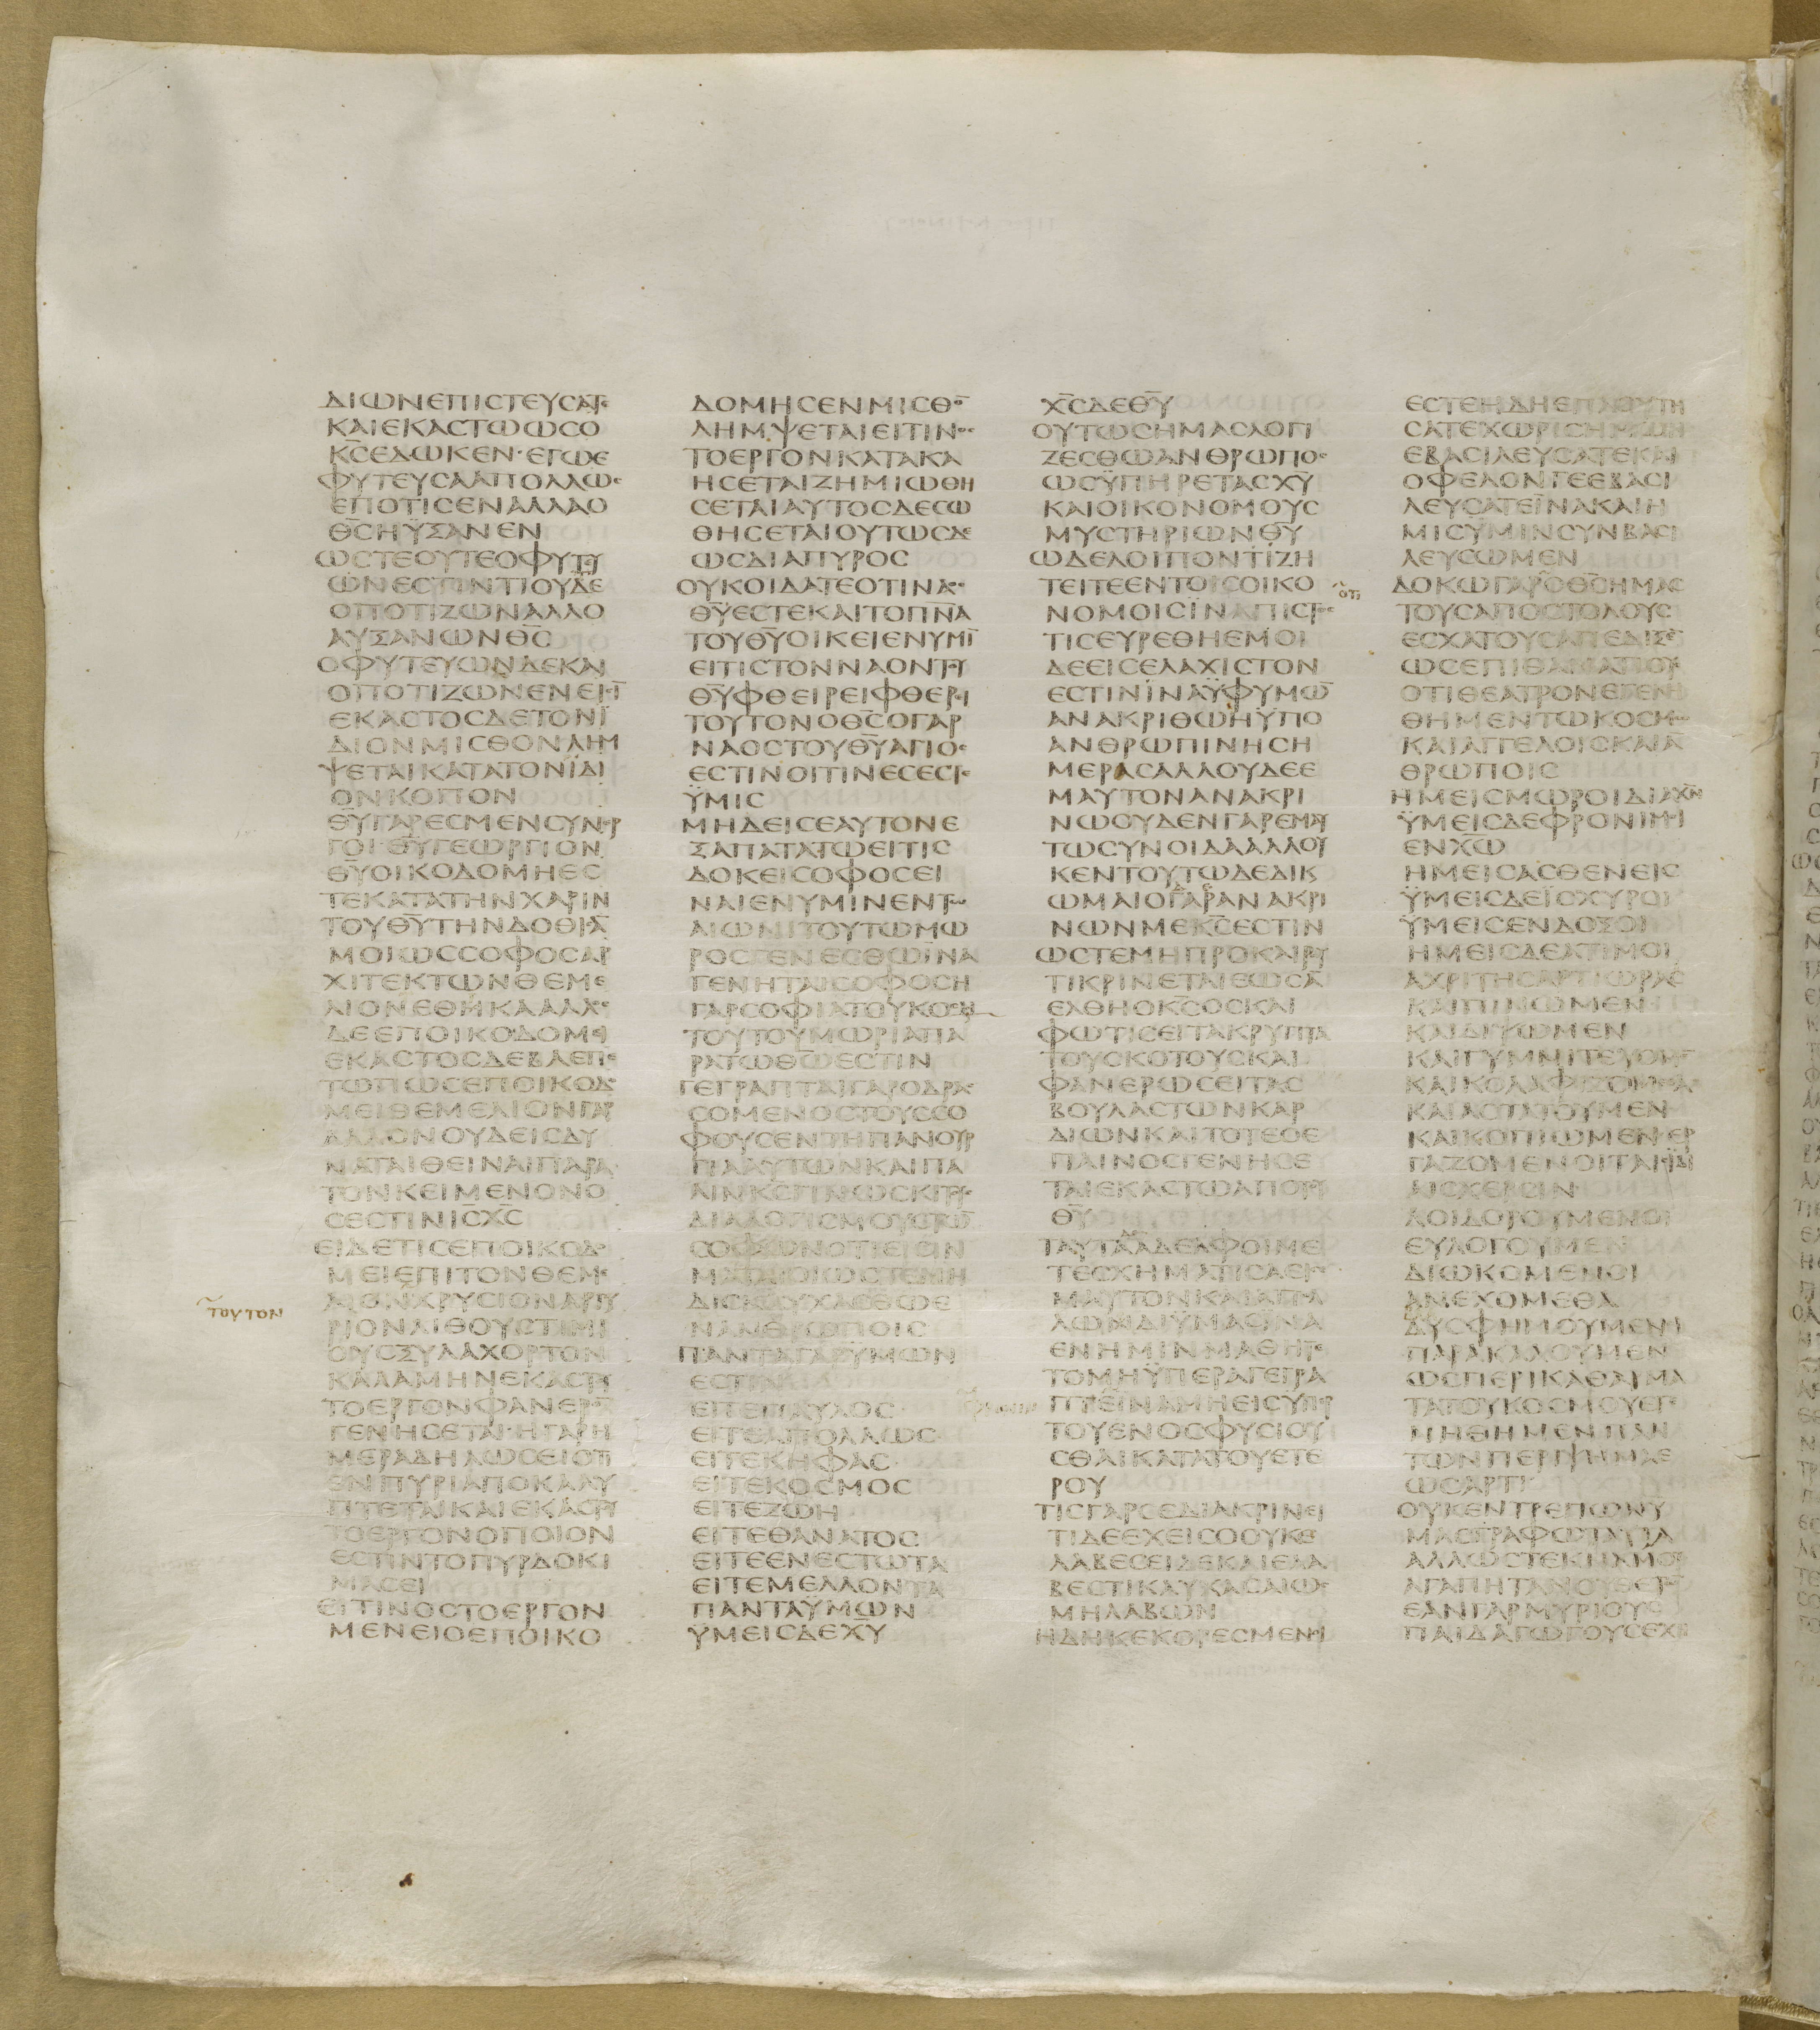 ΔΙΩΝΕΠΙCΤΕΥCΑΤΕ
ΚΑΙΕΚΑCΤΩΩCΟ
Κ̅C̅ΕΔΩΚΕΝ·ΕΓΩΕ
ΦΥΤΕΥCΑΑΠΟΛΛΩC
ΕΠΟΤΙCΕΝΑΛΛΑΟ
Θ̅C̅ΗΫΞΑΝΕΝ
ΩCΤΕΟΥΤΕΟΦΥΤΕΥ
ΩΝΕCΤΙΝΤΙΟΥΔΕ
ΟΠΟΤΙΖΩΝΑΛΛΟ
ΑΥΞΑΝΩΝΘ̅C̅
ΟΦΥΤΕΥΩΝΔΕΚΑΙ
ΟΠΟΤΙΖΩΝΕΝΕΙCΙ̅
ΕΚΑCΤΟCΔΕΤΟΝΪ
ΔΙΟΝΜΙCΘΟΝΛΗΜ
ΨΕΤΑΙΚΑΤΑΤΟΝΪΔΙ
ΟΝΚΟΠΟΝ
Θ̅Υ̅ΓΑΡΕCΜΕΝCΥΝΕΡ
ΓΟΙ·Θ̅Υ̅ΓΕΩΡΓΙΟΝ
Θ̅Υ̅ΟΙΚΟΔΟΜΗΕC
ΤΕΚΑΤΑΤΗΝΧΑΡΙΝ
ΤΟΥΘ̅Υ̅ΤΗΝΔΟΘΙCΑ̅
ΜΟΙΩCCΟΦΟCΑΡ
ΧΙΤΕΚΤΩΝΘΕΜΕ
ΛΙΟΝΕΘΗΚΑΑΛΛΟC
ΔΕΕΠΟΙΚΟΔΟΜΕΙ
ΕΚΑCΤΟCΔΕΒΛΕΠΕ
ΤΩΠΩCΕΠΟΙΚΟΔΟ
ΜΕΙΘΕΜΕΛΙΟΝΓΑΡ
ΑΛΛΟΝΟΥΔΕΙCΔΥ
ΝΑΤΑΙΘΕΙΝΑΙΠΑΡΑ
ΤΟΝΚΕΙΜΕΝΟΝΟ
CΕCΤΙΝΙ̅C̅Χ̅C̅
ΕΙΔΕΤΙCΕΠΟΙΚΟΔΟ
ΜΕΙΕΠΙΤΟΝΘΕΜΕ
ΛΙΟΝΧΡΥCΙΟΝΑΡΓΥ
ΡΙΟΝΛΙΘΟΥCΤΙΜΙ
ΟΥCΞΥΛΑΧΟΡΤΟΝ
ΚΑΛΑΜΗΝΕΚΑCΤΟΥ
ΤΟΕΡΓΟΝΦΑΝΕΡΟ̅
ΓΕΝΗCΕΤΑΙ·ΗΓΑΡΗ
ΜΕΡΑΔΗΛΩCΕΙΟΤΙ
ΕΝΠΥΡΙΑΠΟΚΑΛΥ
ΠΤΕΤΑΙΚΑΙΕΚΑCΤΟΥ
ΤΟΕΡΓΟΝΟΠΟΙΟΝ
ΕCΤΙΝΤΟΠΥΡΔΟΚΙ
ΜΑCΕΙ
ΕΙΤΙΝΟCΤΟΕΡΓΟΝ
ΜΕΝΕΙΟΕΠΟΙΚΟ
ΔΟΜΗCΕΝΜΙCΘΟ̅
ΛΗΜΨΕΤΑΙΕΙΤΙΝΟC
ΤΟΕΡΓΟΝΚΑΤΑΚΑ
ΗCΕΤΑΙΖΗΜΙΩΘΗ
CΕΤΑΙΑΥΤΟCΔΕCΩ
ΘΗCΕΤΑΙΟΥΤΩCΔΕ
ΩCΔΙΑΠΥΡΟC
ΟΥΚΟΙΔΑΤΕΟΤΙΝΑΟC
Θ̅Υ̅ΕCΤΕΚΑΙΤΟΠ̅Ν̅Α̅
ΤΟΥΘ̅Υ̅ΟΙΚΕΙΕΝΥΜΙ̅
ΕΙΤΙCΤΟΝΝΑΟΝΤΟΥ
Θ̅Υ̅ΦΘΕΙΡΕΙΦΘΕΡΕΙ
ΤΟΥΤΟΝΟΘ̅C̅ΟΓΑΡ
ΝΑΟCΤΟΥΘ̅Υ̅ΑΓΙΟC
ΕCΤΙΝΟΙΤΙΝΕCΕCΤΕ
ΫΜΙC
ΜΗΔΕΙCΕΑΥΤΟΝΕ
ΞΑΠΑΤΑΤΩΕΙΤΙC
ΔΟΚΕΙCΟΦΟCΕΙ
ΝΑΙΕΝΥΜΙΝΕΝΤΩ
ΑΙΩΝΙΤΟΥΤΩΜΩ
ΡΟCΓΕΝΕCΘΩΪΝΑ
ΓΕΝΗΤΑΙCΟΦΟCΗ
ΓΑΡCΟΦΙΑΤΟΥΚΟCΜΟΥ
ΤΟΥΤΟΥΜΩΡΙΑΠΑ
ΡΑΤΩΘ̅Ω̅ΕCΤΙΝ
ΓΕΓΡΑΠΤΑΙΓΑΡΟΔΡΑC
CΟΜΕΝΟCΤΟΥCCΟ
ΦΟΥCΕΝΤΗΠΑΝΟΥΡ
ΓΙΑΑΥΤΩΝΚΑΙΠΑ
ΛΙΝΚ̅C̅ΓΙΝΩCΚΙΤΟΥC
ΔΙΑΛΟΓΙCΜΟΥCΤΩ̅
CΟΦΩΝΟΤΙΕΙCΙΝ
ΜΑΤΑΙΟΙΩCΤΕΜΗ
ΔΙCΚΑΥΧΑCΘΩΕ
ΝΑΝΘΡΩΠΟΙC
ΠΑΝΤΑΓΑΡΥΜΩΝ
ΕCΤΙΝ
ΕΙΤΕΠΑΥΛΟC
ΕΙΤΕΑΠΟΛΛΩC
ΕΙΤΕΚΗΦΑC
ΕΙΤΕΚΟCΜΟC
ΕΙΤΕΖΩΗ
ΕΙΤΕΘΑΝΑΤΟC
ΕΙΤΕΕΝΕCΤΩΤΑ
ΕΙΤΕΜΕΛΛΟΝΤΑ
ΠΑΝΤΑΫΜΩΝ
ΫΜΕΙCΔΕΧ̅Υ̅
Χ̅C̅ΔΕΘ̅Υ̅
ΟΥΤΩCΗΜΑCΛΟΓΙ
ΖΕCΘΩΑΝΘΡΩΠΟC
ΩCΫΠΗΡΕΤΑCΧ̅Υ̅
ΚΑΙΟΙΚΟΝΟΜΟΥC
ΜΥCΤΗΡΙΩΝΘ̅Υ̅
ΩΔΕΛΟΙΠΟΝΤΙΖΗ
ΤΕΙΤΕΕΝΤΟΙCΟΙΚΟ
ΝΟΜΟΙCΪΝΑΠΙCΤΟC
ΤΙCΕΥΡΕΘΗΕΜΟΙ
ΔΕΕΙCΕΛΑΧΙCΤΟΝ
ΕCΤΙΝΪΝΑΫΦΥΜΩ̅
ΑΝΑΚΡΙΘΩΗΫΠΟ
ΑΝΘΡΩΠΙΝΗCΗ
ΜΕΡΑCΑΛΛΟΥΔΕΕ
ΜΑΥΤΟΝΑΝΑΚΡΙ
ΝΩΟΥΔΕΝΓΑΡΕΜΑΥ
ΤΩCΥΝΟΙΔΑΑΛΛΟΥ
ΚΕΝΤΟΥΤΩΔΕΔΙΚ
ΩΜΑΙΟΓΑΡΑΝΑΚΡΙ
ΝΩΝΜΕΚ̅C̅ΕCΤΙΝ
ΩCΤΕΜΗΠΡΟΚΑΙΡΥ
ΤΙΚΡΙΝΕΤΑΙΕΩCΑ̅
ΕΛΘΗΟΚ̅C̅ΟCΚΑΙ
ΦΩΤΙCΕΙΤΑΚΡΥΠΤΑ
ΤΟΥCΚΟΤΟΥCΚΑΙ
ΦΑΝΕΡΩCΕΙΤΑC
ΒΟΥΛΑCΤΩΝΚΑΡ
ΔΙΩΝΚΑΙΤΟΤΕΟΕ
ΠΑΙΝΟCΓΕΝΗCΕ
ΤΑΙΕΚΑCΤΩΑΠΟΤΟΥ
Θ̅Υ̅
ΤΑΥΤΑΑΔΕΛΦΟΙΜΕ
ΤΕCΧΗΜΑΤΙCΑΕΙC
ΜΑΥΤΟΝΚΑΙΑΠΑ
ΛΩΝΔΙΥΜΑCΙΝΑ
ΕΝΗΜΙΝΜΑΘΗΤΕ
ΤΟΜΗΫΠΕΡΑΓΕΓΡΑ
ΠΤΕΪΝΑΜΗΕΙCΫΠΕΡ
ΤΟΥΕΝΟCΦΥCΙΟΥ
CΘΑΙΚΑΤΑΤΟΥΕΤΕ
ΡΟΥ
ΤΙCΓΑΡCΕΔΙΑΚΡΙΝΕΙ
ΤΙΔΕΕΧΕΙCΟΟΥΚΕ
ΛΑΒΕCΕΙΔΕΚΑΙΕΛΑ
ΒΕCΤΙΚΑΥΧΑCΑΙΩC
ΜΗΛΑΒΩΝ
ΗΔΗΚΕΚΟΡΕCΜΕΝΟΙ
ΕCΤΕΗΔΗΕΠΛΟΥΤΗ
CΑΤΕΧΩΡΙCΗΜΩΝ
ΕΒΑCΙΛΕΥCΑΤΕΚΑΙ
ΟΦΕΛΟΝΓΕΕΒΑCΙ
ΛΕΥCΑΤΕΪΝΑΚΑΙΗ
ΜΙCΫΜΙΝCΥΝΒΑCΙ
ΛΕΥCΩΜΕΝ
ΔΟΚΩΓΑΡΟΘ̅C̅ΗΜΑC
ΤΟΥCΑΠΟCΤΟΛΟΥC
ΕCΧΑΤΟΥCΑΠΕΔΙΞΕ̅
ΩCΕΠΙΘΑΝΑΤΙΟΥC
ΟΤΙΘΕΑΤΡΟΝΕΓΕΝΗ
ΘΗΜΕΝΤΩΚΟCΜΩ
ΚΑΙΑΓΓΕΛΟΙCΚΑΙΑ̅
ΘΡΩΠΟΙC
ΗΜΕΙCΜΩΡΟΙΔΙΑΧ̅Ν̅
ΫΜΕΙCΔΕΦΡΟΝΙΜΟΙ
ΕΝΧ̅Ω̅
ΗΜΕΙCΑCΘΕΝΕΙC
ΫΜΕΙCΔΕΪCΧΥΡΟΙ
ΫΜΕΙCΕΝΔΟΞΟΙ
ΗΜΕΙCΔΕΑΤΙΜΟΙ
ΑΧΡΙΤΗCΑΡΤΙΩΡΑC
ΚΑΙΠΙΝΩΜΕΝ
ΚΑΙΔΙΨΩΜΕΝ
ΚΑΙΓΥΜΝΙΤΕΥΟΜΕ̅
ΚΑΙΚΟΛΑΦΙΖΟΜΕΘΑ
ΚΑΙΑCΤΑΤΟΥΜΕΝ
ΚΑΙΚΟΠΙΩΜΕΝ·ΕΡ
ΓΑΖΟΜΕΝΟΙΤΑΙCΪΔΙ
ΑΙCΧΕΡCΙΝ
ΛΟΙΔΟΡΟΥΜΕΝΟΙ
ΕΥΛΟΓΟΥΜΕΝ
ΔΙΩΚΟΜΕΝΟΙ
ΑΝΕΧΟΜΕΘΑ
ΔΥCΦΗΜΟΥΜΕΝΟΙ
ΠΑΡΑΚΑΛΟΥΜΕΝ
ΩCΠΕΡΙΚΑΘΑΡΜΑ
ΤΑΤΟΥΚΟCΜΟΥΕΓΕ
ΝΗΘΗΜΕΝΠΑΝ
ΤΩΝΠΕΡΙΨΗΜΑΕ
ΩCΑΡΤΙ
ΟΥΚΕΝΤΡΕΠΩΝΥ
ΜΑCΓΡΑΦΩΤΑΥΤΑ
ΑΛΛΩCΤΕΚΝΑΜΟΥ
ΑΓΑΠΗΤΑΝΟΥΘΕΤΩ̅
ΕΑΝΓΑΡΜΥΡΙΟΥC
ΠΑΙΔΑΓΩΓΟΥCΕΧΗ
ὅτι